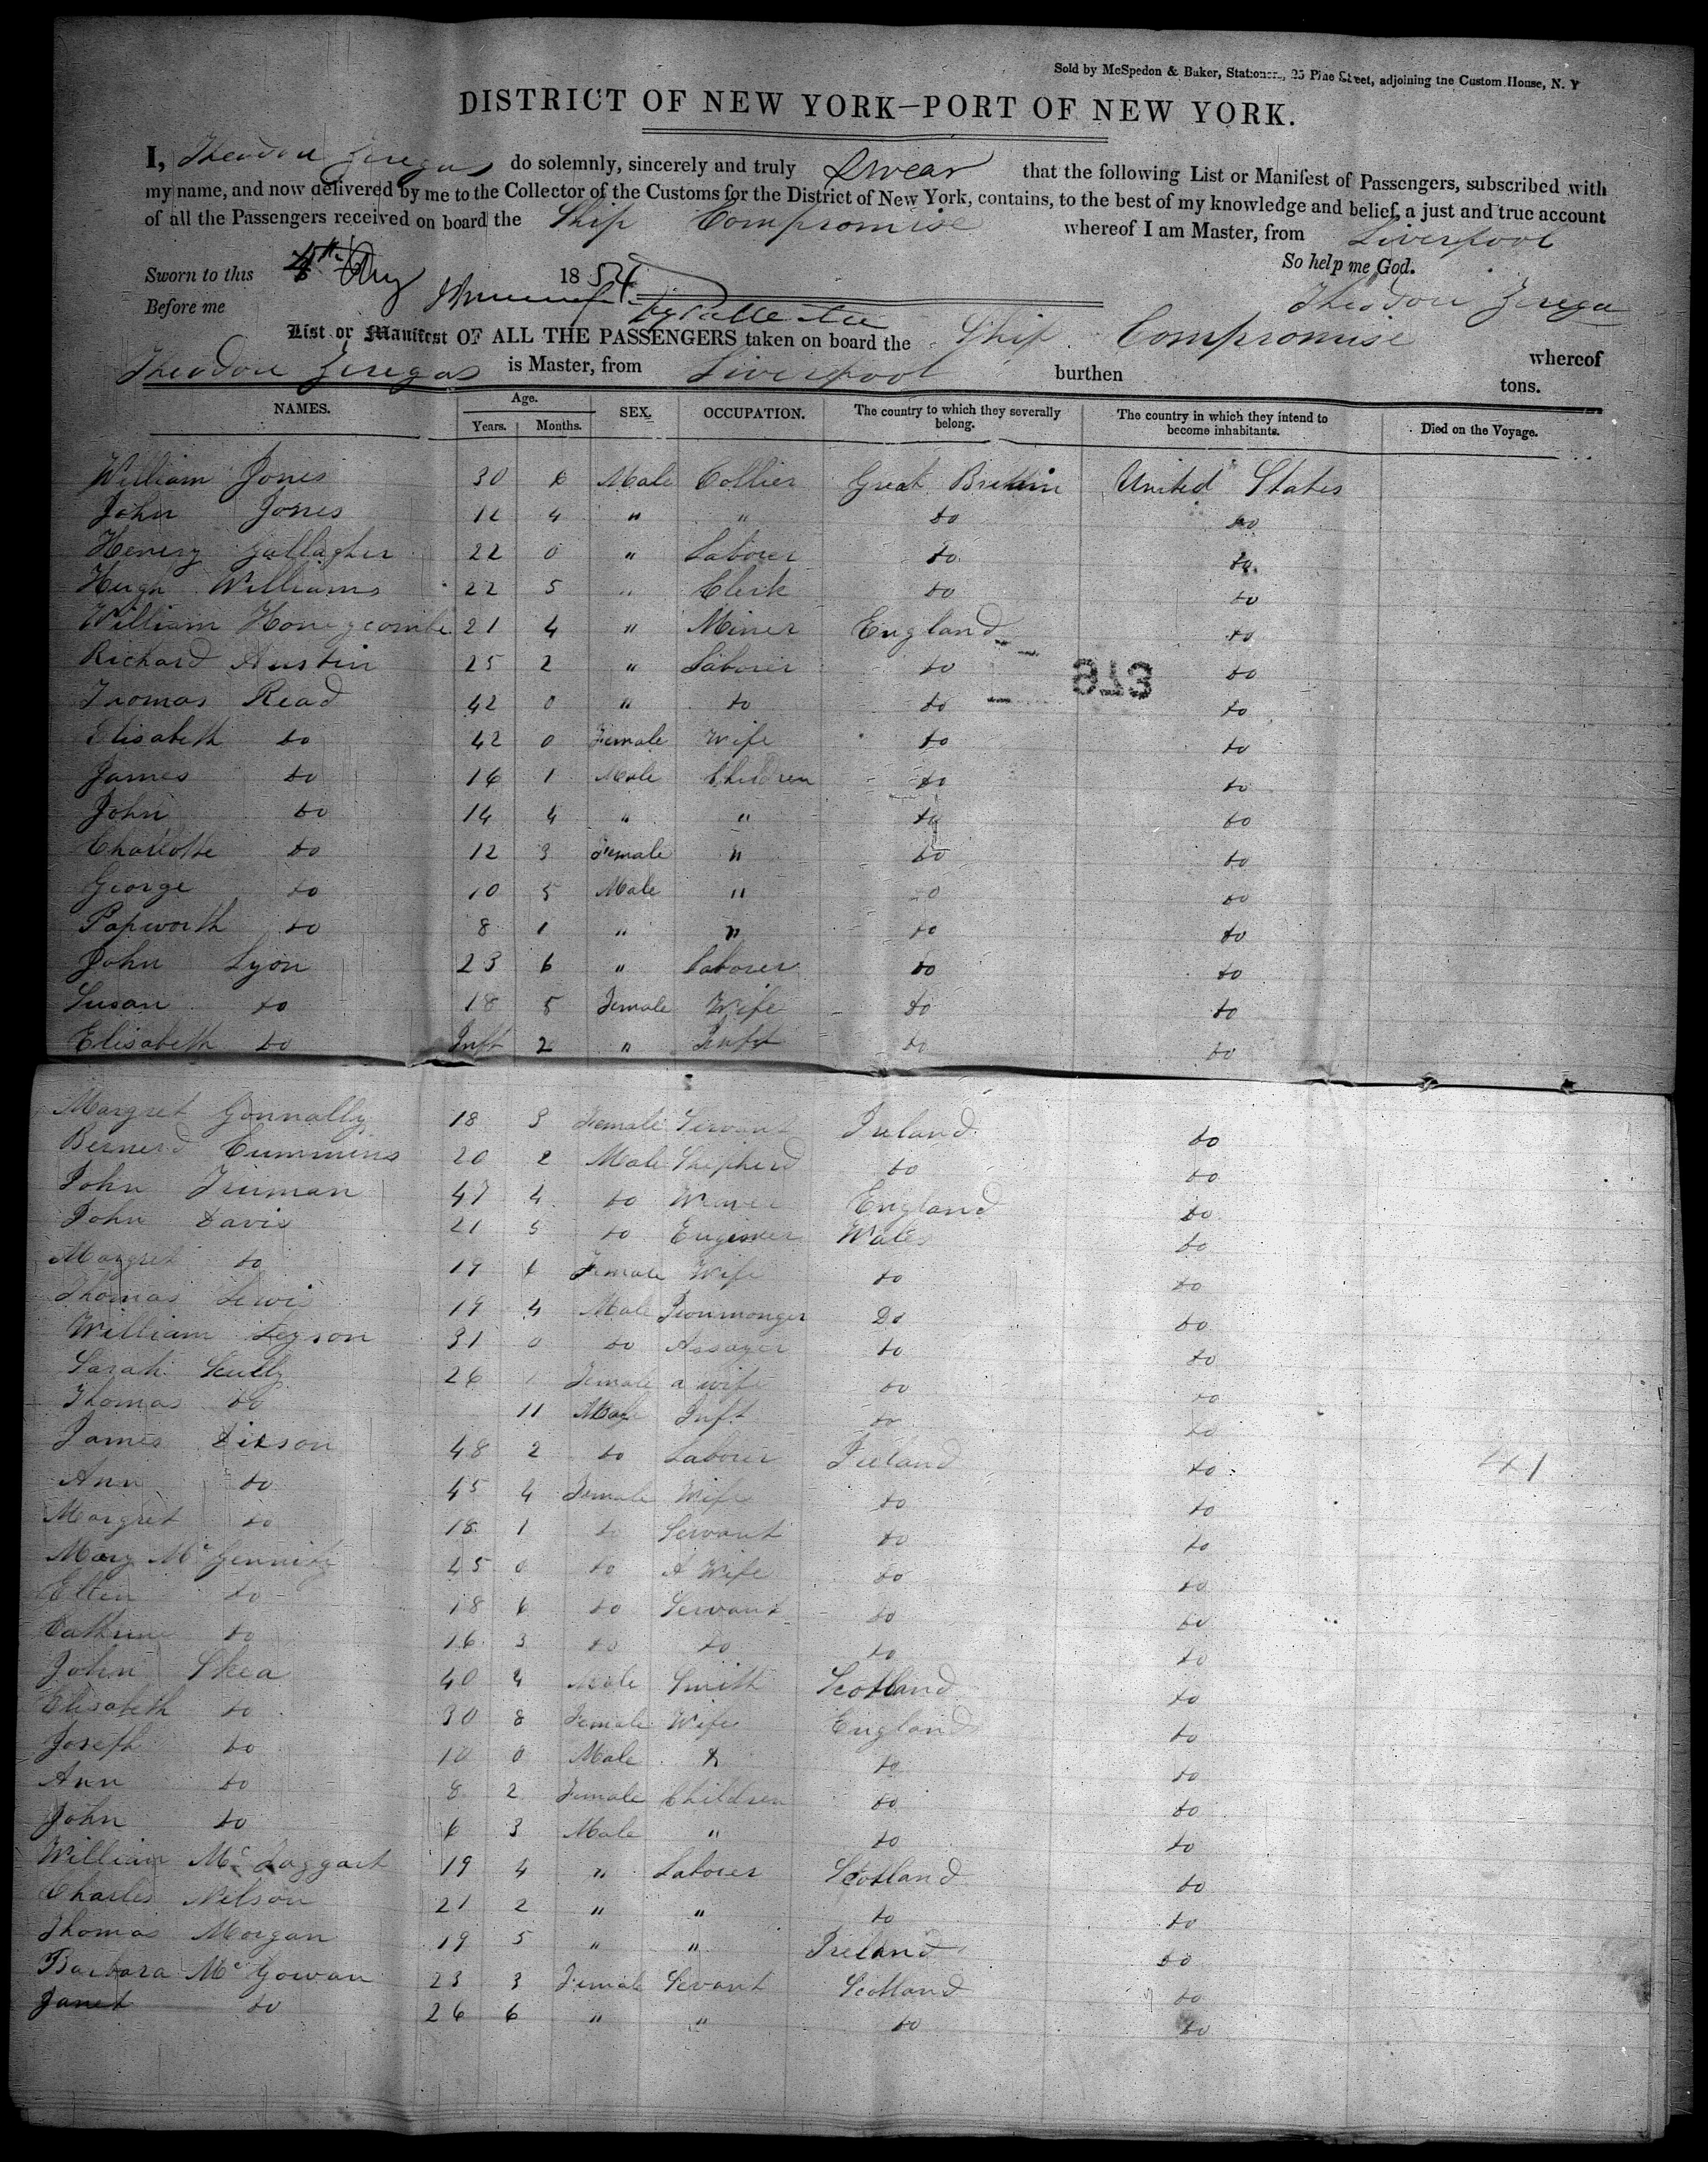 Sold by McSpedon & Baker, Stationers, 25 Pine Street, adjoining the Custom House, N. Y
DISTRICT OF NEW YORK—PORT OF NEW YORK.
I, Theodore Zeregas do solemnly, sincerely and truly Swear that the following List or Manifest of Passengers, subscribed with
my name, and now delivered by me to the Collector of the Customs for the District of New York, contains, to the best of my knowledge and belief, a just and true account
of all the Passengers received on board the Ship Compromise whereof I am Master, from Liverpool
So help me God.
Sworn to this 4th Aug 1854
Theodore Zerega
Before me
List or Manifest OF ALL THE PASSENGERS taken on board the Ship Compromise whereof
Theodore Zeregas is Master, from Liverpool burthen tons.
NAMES. Age. Years. Months. SEX. OCCUPATION. The country to which they severally belong. The country in which they intend to become inhabitants. Died on the Voyage.
William Jones 30 6 Male Collier Great Brittin United States
John Jones 12 4 " " do do
Henery Gallagher 22 0 " Laborer do do
Hugh Williams 22 5 " Clerk do do
William Honeycombe 21 4 " Miner England do
Richard Austin 25 2 " Laborer do do
973
Thomas Read 42 0 " do do do
Elisabeth do 42 0 Female Wife do do
James do 16 1 Male Children do do
John do 14 4 " " do do
Charlotte do 12 3 Female " do do
George do 10 5 Male " do do
Papworth do 8 1 " " do do
John Lyon 23 6 " Laborer do do
Susan do 18 5 Female Wife do do
Elisabeth do Inft 2 " Inft do do
Margret Gonnally 18 3 Female Servant Ireland do
Bernerd Cummins 20 2 Male Shepherd do do
John Truman 47 4 do Weaver England do
John Davis 21 5 do Engineer Wales do
Margret do 19 6 Female Wife do do
Thomas Lewis 19 4 Male Ironmonger Do do
William Leyson 31 0 do Assayer do do
Sarah Scully 26 1 Female a wife do do
Thomas do 11 Male Inft do do
James Dixson 48 2 do Laborer Ireland do
41
Ann do 45 4 Female Wife do do
Margret do 18 1 do Servant do do
Mary Mc 45 0 do A Wife do do
Ellen do 18 6 do Servant do do
Cathrine do 16 3 do do do do
John Shea 40 4 Male Smith Scotland do
Elisabeth do 30 8 Female Wife England do
Joseph do 10 0 Male do do
Ann do 8 2 Female Children do do
John do 6 3 Male " do do
William McTaggart 19 4 " Laborer Scotland do
Charles Nelson 21 2 " " do do
Thomas Morgan 19 5 " " Ireland do
Barbara McGowan 23 3 Female Sevant Scotland do
Janet do 26 6 " " do do